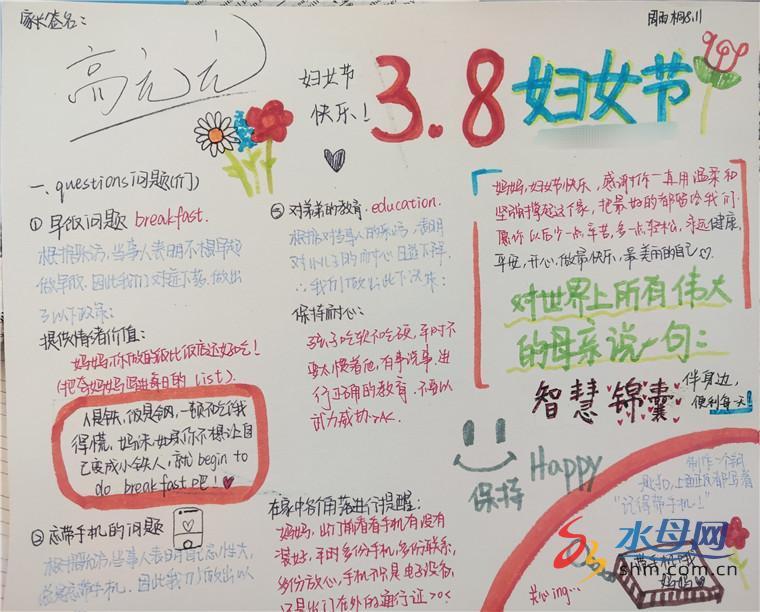 家长签名：
高元元
周雨桐8.11
妇女节
快乐！
3.8妇女节
一、questions问题(们)
① 早饭问题 breakfast.
根据采访，当事人表明不想早起
做早饭.因此我们对症下药，做出
了以下政策：
提供情绪价值：
妈妈你做的饭比饭店还好吃！
人是铁，饭是钢，一顿不吃饿
得慌.妈咪，如果你不想让自
己变成小铁人，就begin to
do breakfast吧！
② 忘带手机的问题
根据采访，当事人表明自己忘性大，
经常忘带手机.因此我们做出以
对弟弟的教育.education.
根据对当事人的采访，表明
对儿子的耐心日益下降，
∴我们做出此下决策：
保持耐心：
孩子吃软不吃硬，平时不
要太惯着他，有事说事，进
行正确的教育.不要以
武力威胁
在家中各个角落进行提醒：
妈妈，出门前看看手机有没有
装好，平时多份手机，多份联系，
多份放心，手机不只是电子设备，
还是出门在外的通行证>o<
妈妈，妇女节快乐，感谢你一直用温柔和
坚强撑起这个家，把最好的都留给我们.
愿你以后少一点辛苦，多一点轻松，永远健康，
平安，开心，做最快乐，最美丽的自己
对世界上所有伟大
的母亲说一句：
智慧锦囊
伴身边，
便利每一天！
保持
Happy
制作一个钥
匙扣，上面正反都写着
“记得带手机！”
带手机哦
妈妈
水母网
shm.com.cn